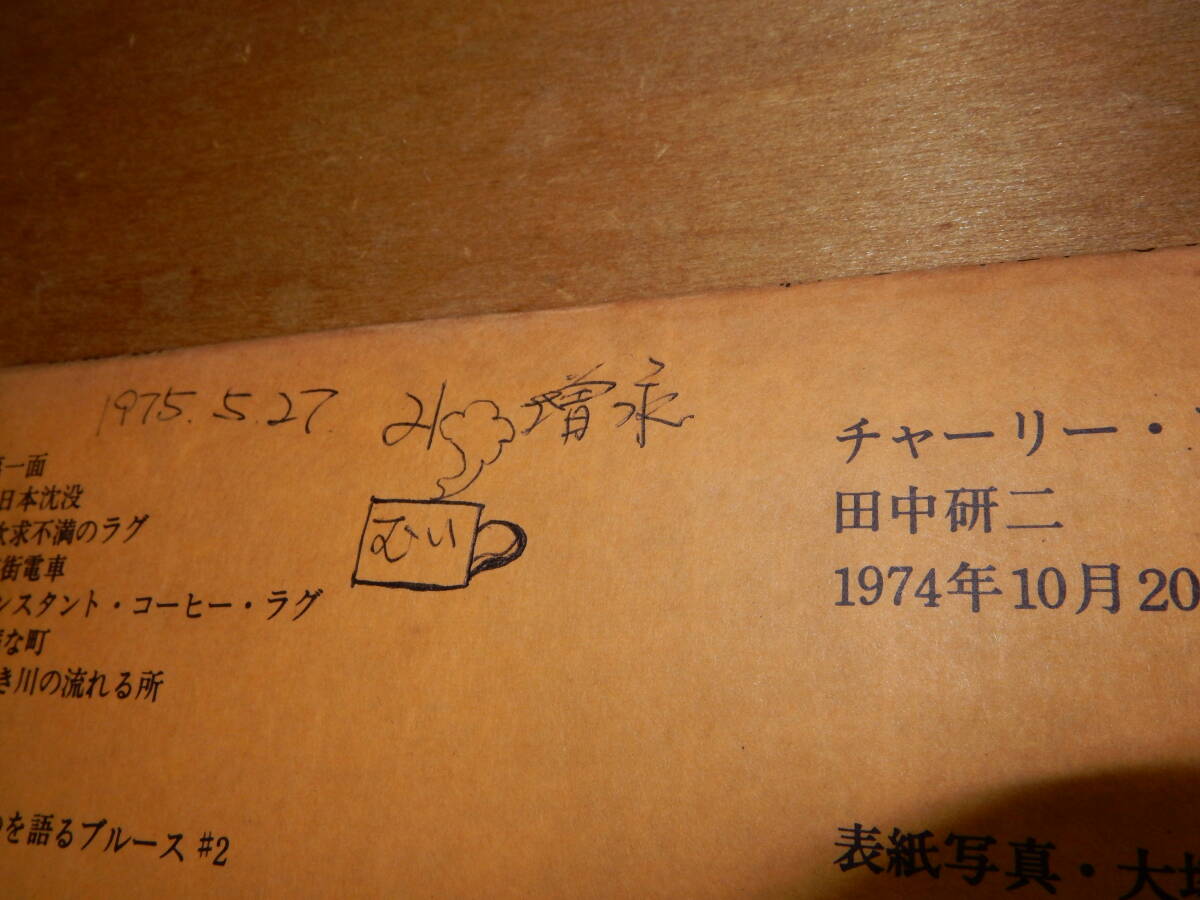 1975.5.27. 増永
むい
一面
日本沈没
求不満のラグ
街電車
ンスタント・コーヒー・ラグ
な町
き川の流れる所
を語るブルース #2
チャーリー・
田中研二
1974年10月20
表紙写真・大